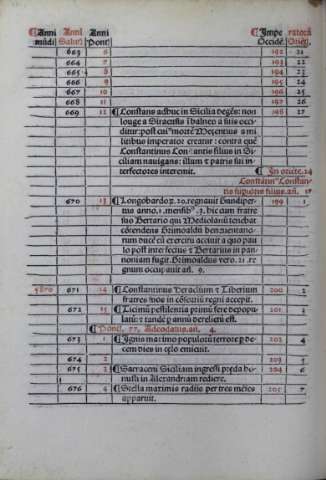 Anni mūdi Anni Salut. Anni Pont. Impe Occidē. ratorū Oriēt.
663 6 192 21
664 7 193 22
665 8 194 23
666 9 195 24
667 10 196 25
668 11 197 26
669 12 Constans adhuc in Sicilia degēs: non 198 27
longe a Siracusis ī balneo a suis occi
ditur: post cui⁹ mortē Mecentius a mi
litibus imperator creatur: contra quē
Constantinus Constantis filius in Si
ciliam nauigans: illum et patris sui in-
terfectores interemit.
In oriēte. 24
Constātin⁹ Constan-
tis superioris filius. añ. 17
670 13 Longobardoꝝ. 20. regnauit Gundiper- 199 1
tus anno. 1. mensib⁹ .3. hic cum fratre
suo Bertario qui Mediolanū tenebat
cōtendens Grimoaldū beneuentano-
rum ducē cū exercitu acciuit a quo pau
lo post interfectus et Bertarius in pan-
noniam fugit. Grimoaldus vero. 21. re
gnum occupauit añ. 9.
5870 671 14 Constantinus Heraclium et Tiberium 200 2
fratres suos in cōsortiū regni accepit.
672 15 Ticinū pestilentia primū fere depopu- 201 3
latū: et tandē p annū derelictū est.
Ponti. 77. Adeodatus. añ. 4.
673 1 Ignis maximo populorū terrore p de 202 4
cem dies in celo emicuit.
674 2 203 5
675 3 Sarraceni Siciliam ingressi preda ho 204 6
nusti in Alexandriam rediere.
676 4 Stella maximis radiis per tres mēses 205 7
apparuit.